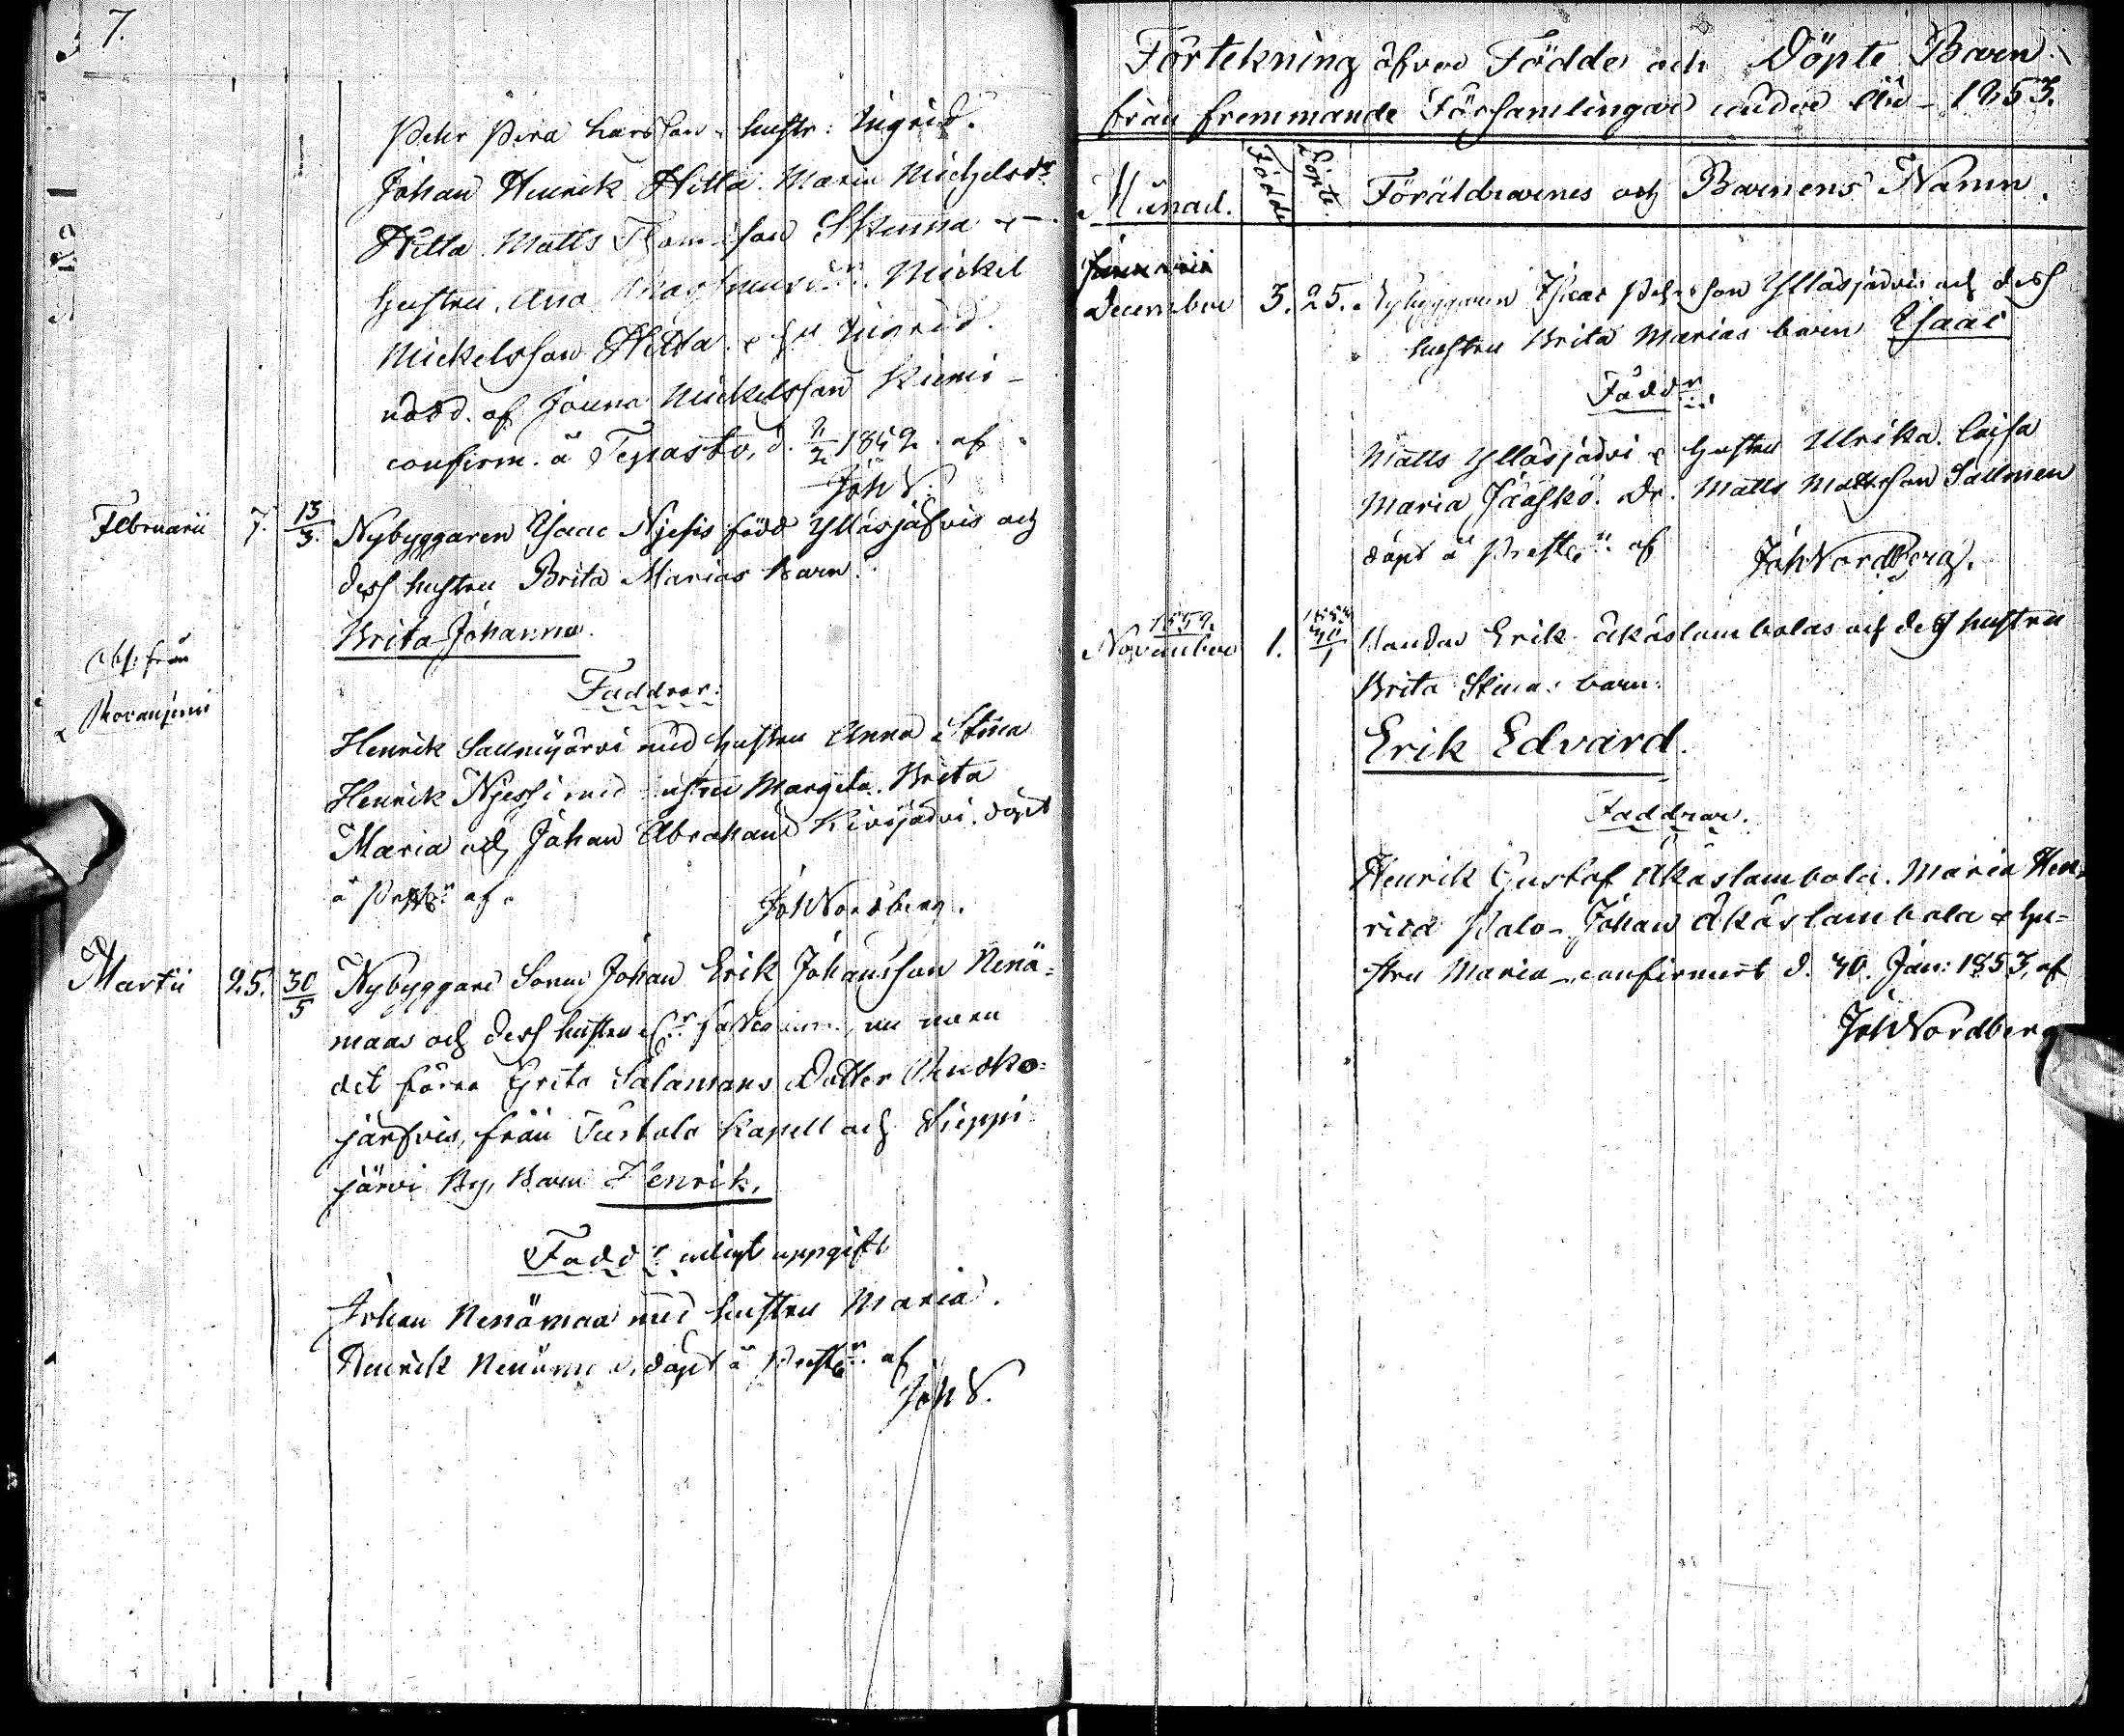 7.
Petr Perä Larsson & hustr: Ingrid.
Johan Henrik Hetta. Maria Michelsdr
Hetta. Matts Thomsson Skumna &
hustru, Ana Mickel
Mickelsson Hetta & hu Ingrid.
nöd d. af Jouna Mickelsson Kiemi-
confirm. å Tepasto, d. 11/2 1852. af
Joh N.
Februarii 7. 13/3. Nybyggaren Isaac Njesis född Ylläsjäfvis och
dess hustru Brita Marias barn.
Brita Johanna.
från
Faddrar:
Henrik Salmijärvi med hustru Anna Stina
Henrik Njessi med hustru Margeta. Brita
Maria och Johan Abraham Kivijärvi. döpt
å Prestg:n af.
Joh Nordberg.
Martii 25. 30/5 Nybyggare Sonen Johan Erik Johansson Nenä=
maas och dess hustru
det förra Greta Salamons Dotter
järfvis, från Turtola Kapell och Sieppi
järvi By, Barn Henrik,
Fadd:r enligt uppgift
Johan Nenämaa med hustru Maria.
Henrik Nenämaa, döpt å Prestg:n af
Joh N.
Förtekning öfver Födde och Döpte Barn
från fremmande Församlingar under År - 1853.
Månad. Födde Döpte. Föräldrarnes och Barnens Namn.
Januarii
December 3. 25. Nybyggaren Isac Pehrsson Ylläsjärvis och dess
hustru Brita Marias barn Isaac
Fadd:r
Matts Ylläsjärvi & hustru Ulrika. Caisa
Maria Jääskö. Dr. Matts Mattsson Sallmen
döpt å Prestg:n af Joh Nordberg.
1852. 1853
November 1. 30/1 Bonden Erik Äkäslombolas och dess hustru
Brita Stinas barn:
Erik Edvard.
Faddrar.
Henrik Gustaf Äkäslombola. Maria Hen=
rica Palo- Johan Äkäslombola & hu=
stru Maria - confirmert d. 30. Jan: 1853, af
Joh Nordberg